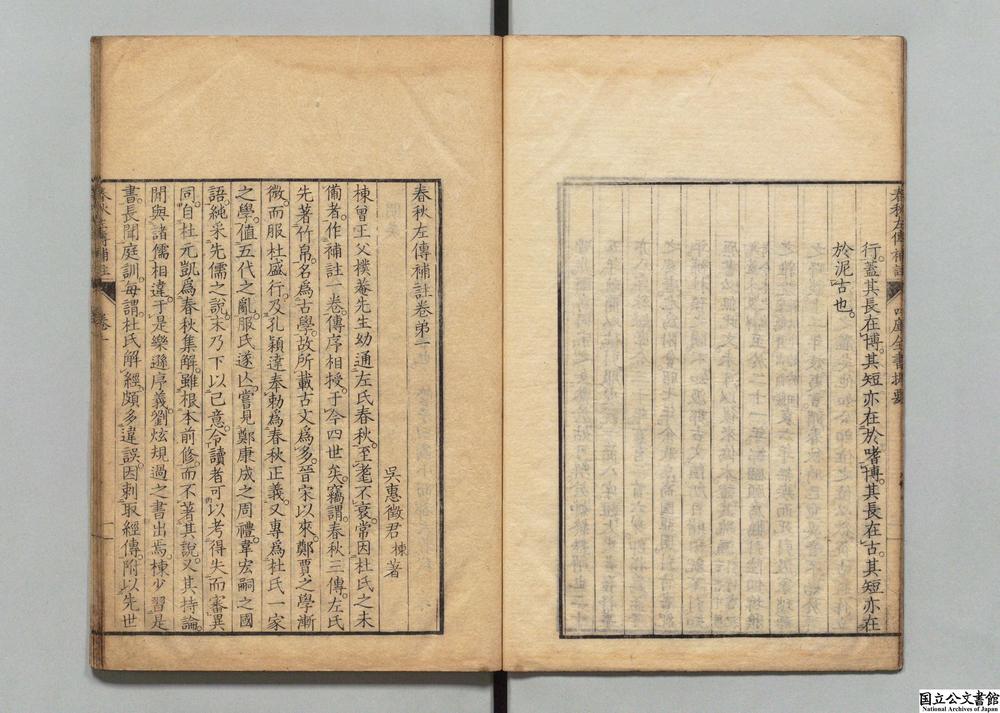 行。蓋其長在博。其短亦在於嗜博。其長在古。其短亦在
於泥古也。
春秋左傳補註卷第一
吳惠徵君 棟 著
棟曾王父樸菴先生幼通左氏春秋。至耄不衰。常因杜氏之未
備者。作補註一卷。傳序相授。于今四世矣。竊謂春秋三傳。左氏
先著竹帛。名爲古學。故所載古文爲多。晉宋以來。鄭賈之學漸
微。而服杜盛行。及孔穎達奉勅爲春秋正義。又專爲杜氏一家
之學。值五代之亂。服氏遂亾。嘗見鄭康成之周禮。韋宏嗣之國
語。純采先儒之說。末乃下以已意。令讀者可以考得失而審異
同。自杜元凱爲春秋集解。雖根本前修。而不著其說。又其持論。
閒與諸儒相違。于是樂遜序義。劉炫規過之書出焉。棟少習是
書。長聞庭訓。每謂杜氏解經。頗多違誤。因刺取經傳。附以先世
国立公文書館
National Archives of Japan